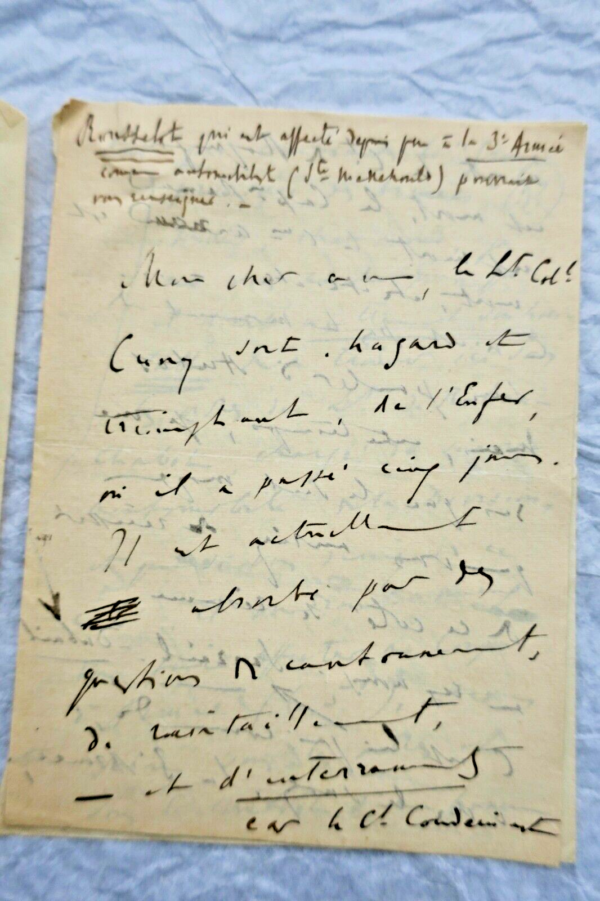 Rousselot qui est affecté depuis peu à la 3e Armée
comme automobilist (Ste Menehould) pourrait
vous renseigner. —
Mon cher ami, le Lt Col
Cuny sort, hagard et
triomphant, de l'Enfer,
où il a passé cinq jours.
Il est actuellement
absorbé par des
questions de cantonnement,
de ravitaillement,
— et d'enterrements
car le Ct